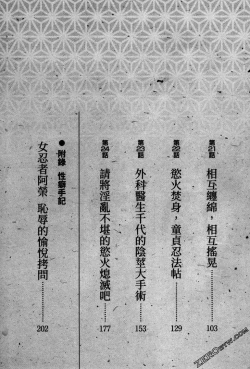 第21話 相互纏綿,相互搖晃 103
第22話 慾火焚身,童貞忍法帖 129
第23話 外科醫生千代的陰莖大手術 153
第24話 請將淫亂不堪的慾火熄滅吧 177
●附錄 性癖手記
女忍者阿榮 恥辱的愉悅拷問 202
ZEROBYW.COM